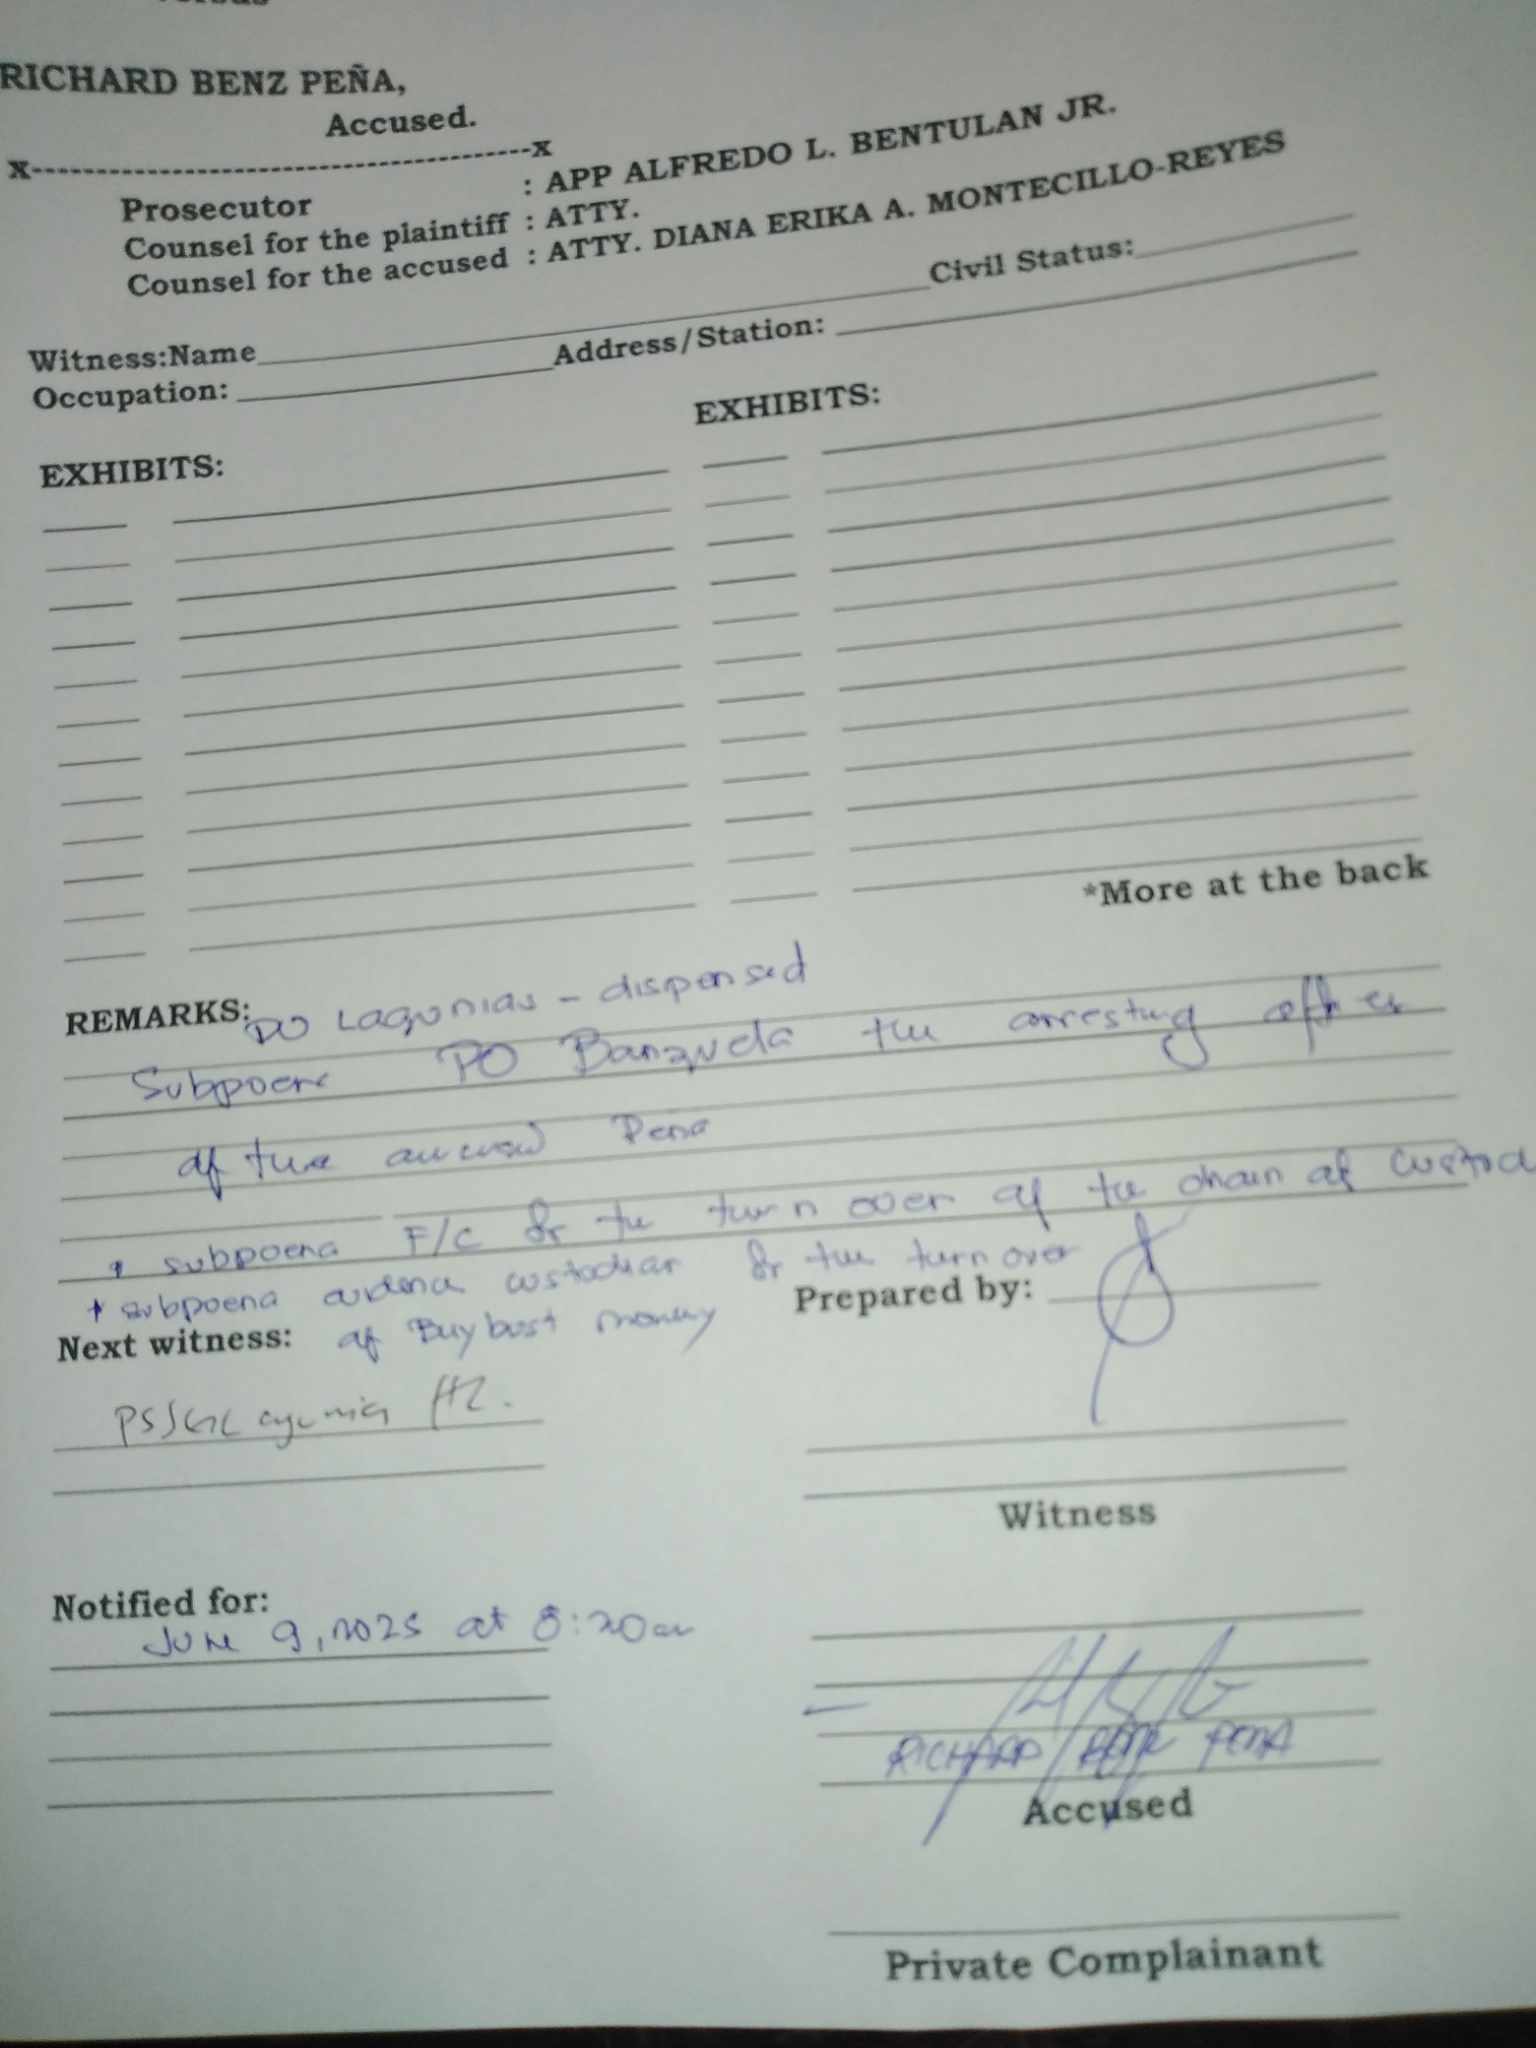 RICHARD BENZ PEÑA,
Accused.
x---------------------------------------x
Prosecutor : APP ALFREDO L. BENTULAN JR.
Counsel for the plaintiff : ATTY.
Counsel for the accused : ATTY. DIANA ERIKA A. MONTECILLO-REYES
Witness:Name Civil Status:
Occupation: Address/Station:
EXHIBITS: EXHIBITS:
*More at the back
REMARKS: PO Lagunias - dispensed
Subpoena PO Banzuela the arresting officer
of the accused Pena
subpoena F/C for the turn over of the chain of custod
subpoena evidence custodian for the turn over
Prepared by:
Next witness: of Buy bust money
Witness
Notified for:
June 9, 2025 at 8:30am
RICHARD BENZ PENA
Accused
Private Complainant